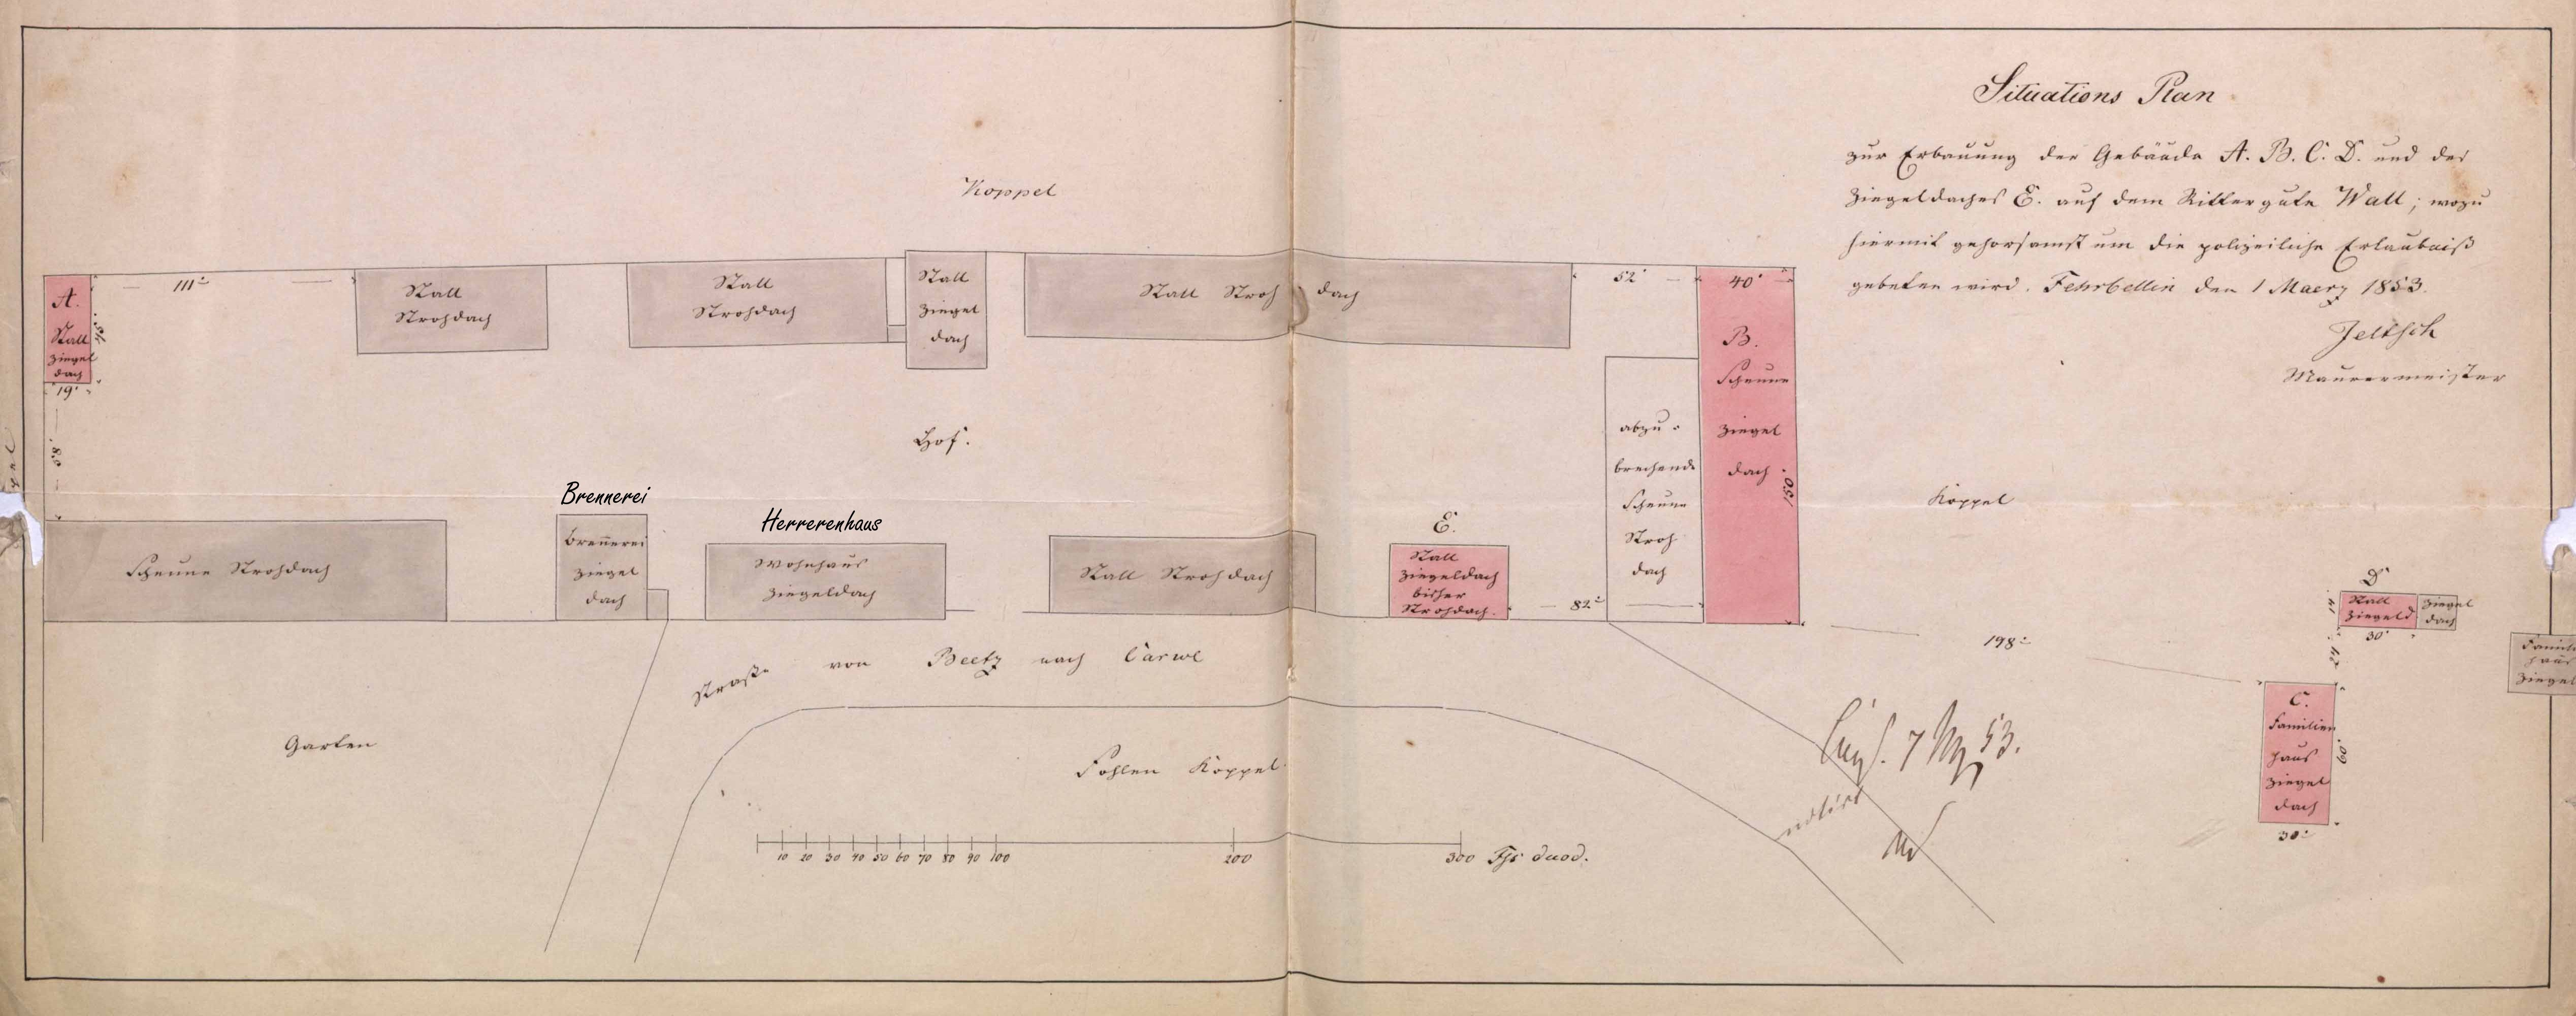 Situations Plan
zur Erbauung der Gebäude A. B. C. D. und des
Ziegeldaches E. auf dem Rittergute Wall; wozu
hiermit gehorsamst um die polizeiliche Erlaubniß
gebeten wird. Fehrbellin den 1 Maerz 1853.
Jeltsch
Maurermeister
Koppel
A.
Stall
Ziegel
dach
45'
19'
111'
Stall
Strohdach
Stall
Strohdach
Stall
Ziegel
dach
Stall Stroh dach
52'
40'
B.
Scheune
Ziegel
dach.
150'
abzu-
brechende
Scheune
Stroh
dach
Hof.
Koppel
Scheune Strohdach
Brennerei
Brennerei
Ziegel
dach
Herrerenhaus
Wohnhaus
Ziegeldach
Stall Strohdach
E.
Stall
Ziegeldach
bisher
Strohdach.
82'
198'
D
Stall
Ziegeld
Ziegel
dach
14
30'
24
Famili
haus
Ziegel
C.
Familien
haus
Ziegel
dach
60'
30'
Straße von Beetz nach Carwe
Garten
Fohlen Koppel
7 Mz 53.
10 20 30 40 50 60 70 80 90 100 200 300 Fß duod.